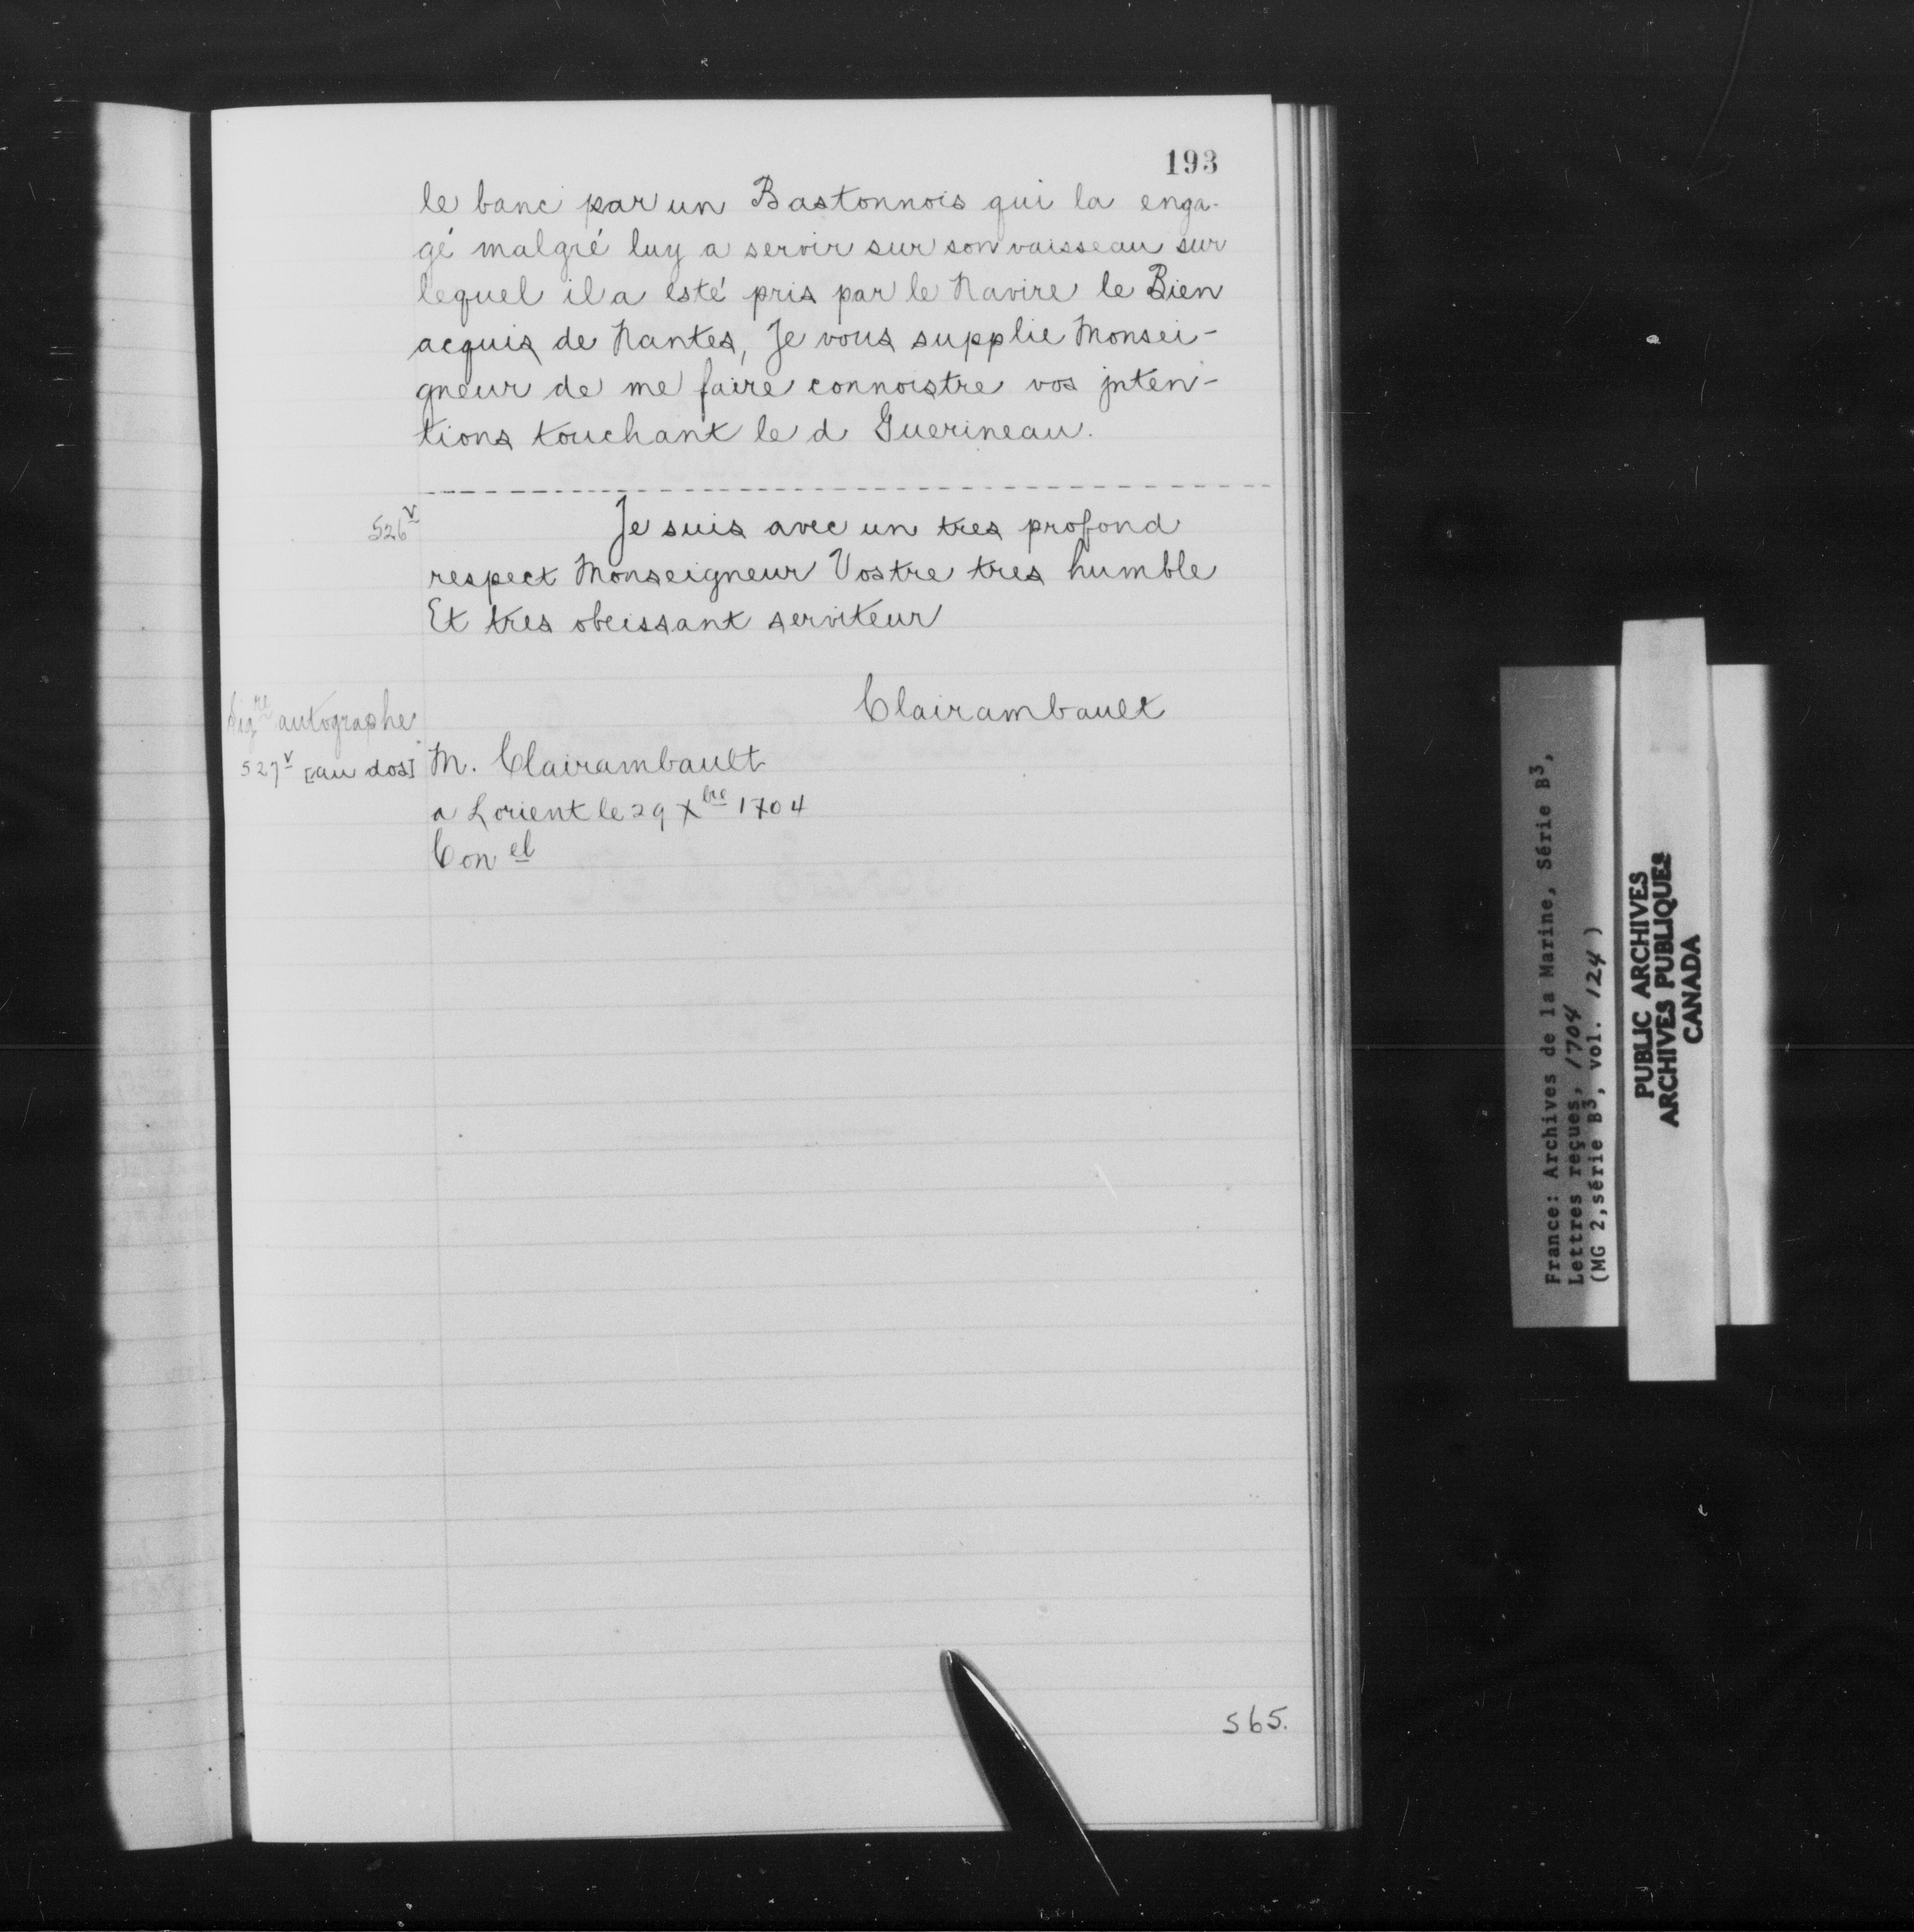 193
le banc par un Bastonnois qui la enga-
gé malgré luy a servir sur son vaisseau sur
lequel il a esté pris par le Navire le Bien
acquis de Nantes, Je vous supplie Monsei-
gneur de me faire connoistre vos jnten-
tions touchant le d Guerineau.
526v Je suis avec un tres profond
respect Monseigneur Vostre tres humble
Et tres obeissant serviteur
Clairambault
Sigre autographe
527v [au dos] M. Clairambault
a Lorient le 29 Xbre 1704
Con el
565.
France: Archives de la Marine, Série B3,
Lettres reçues, 1704
(MG 2, série B3, vol. 124)
PUBLIC ARCHIVES
ARCHIVES PUBLIQUES
CANADA